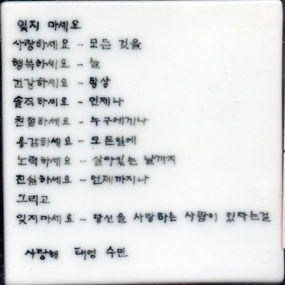 잊지 마세요
사랑하세요 - 모든 것을
행복하세요 - 늘
건강하세요 - 항상
솔직하세요 - 언제나
친절하세요 - 누구에게나
용감하세요 - 모든일에
노력하세요 - 살아있는 날까지
진실하세요 - 언제까지나
그리고
잊지마세요 - 당신을 사랑하는 사람이 있다는걸
사랑해 태영 수민